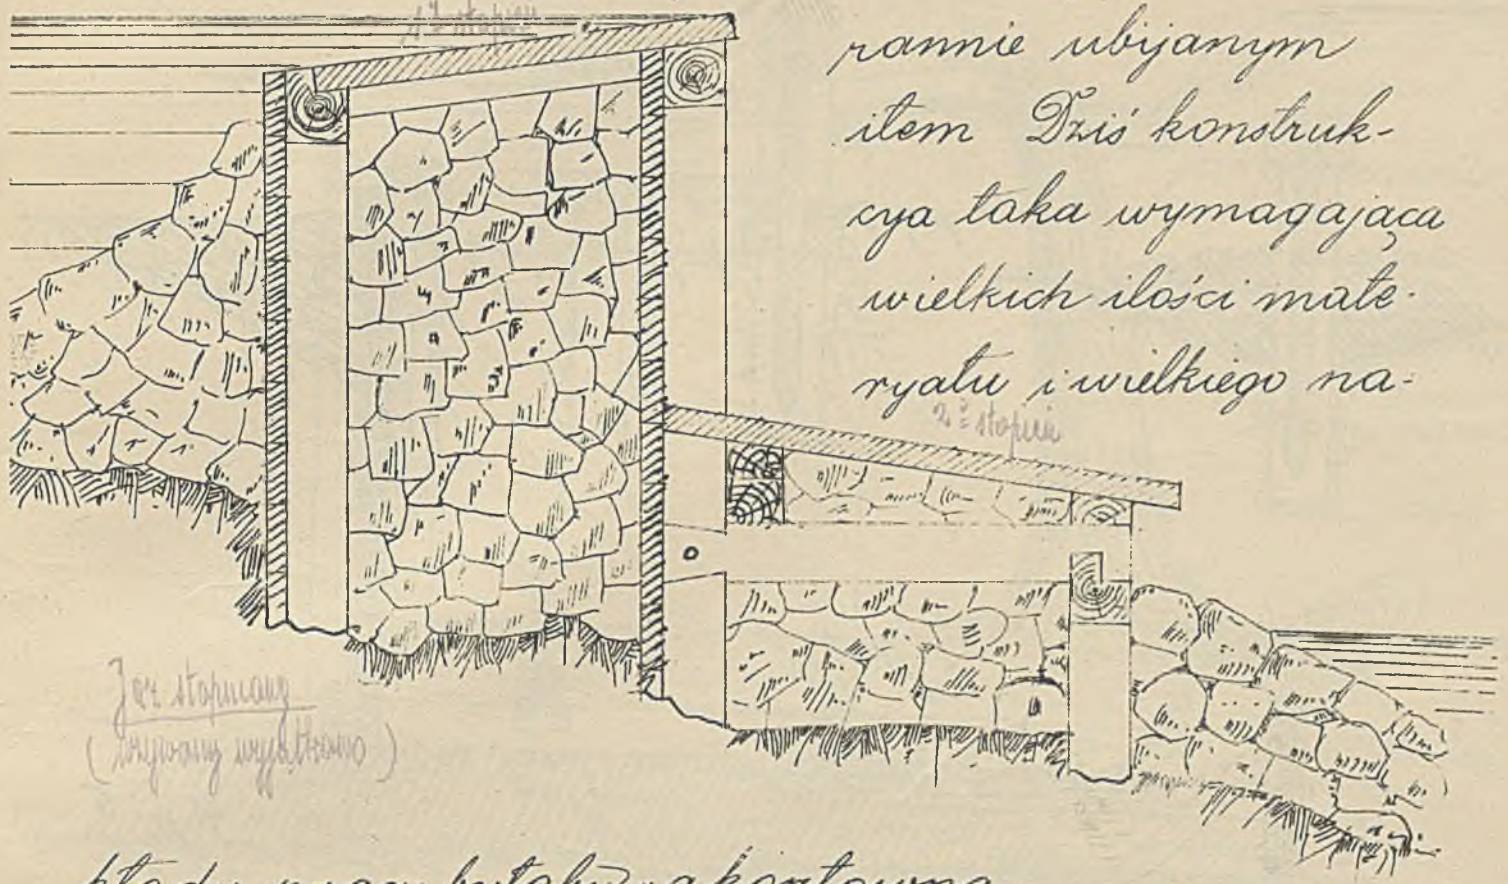 1szy stopień
rannie ubijanym
iłem Dziś konstruk-
cya taka wymagająca
wielkich ilości mate-
ryału i wielkiego na-
2gi stopień
Jaz stopniowy
(używany wyjątkowo)
kładu pracy byłaby za kosztowna